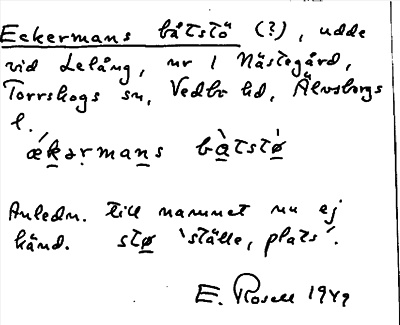 Eckermans båtstö (?), udde
vid Lelång, nr 1 Nästegård,
Torrskogs sn, Vedbo hd, Älvsborgs
l.
ǽkərmans bàtstǿ
Anledn. till namnet nu ej
känd. stø 'ställe, plats'.
E. Rosell 1949